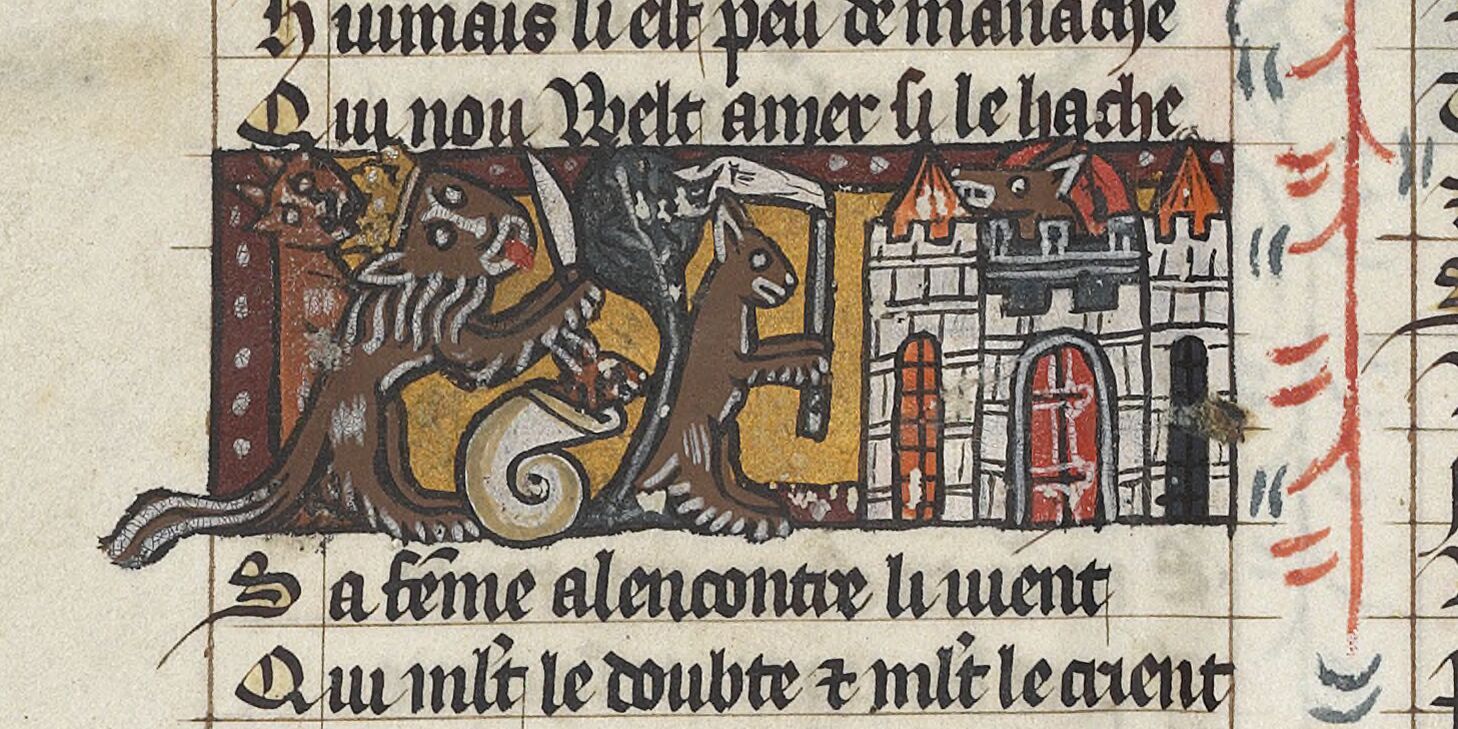 Huimais li est peu de manache
Qui nou Welt amer si le hache
Sa fēme alencontre li uient
Qui mlt le doubte ⁊ mlt le crient